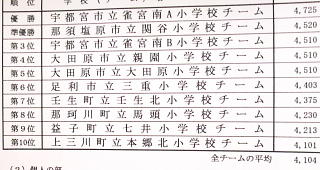 順 位
優 勝 宇都宮市立雀宮南A小学校チーム 4,725
準優勝 那須塩原市立関谷小学校チーム 4,520
第3位 宇都宮市立雀宮南B小学校チーム 4,510
第4位 大田原市立親園小学校チーム 4,510
第5位 大田原市立大田原小学校チーム 4,510
第6位 足利市立三重小学校チーム 4,403
第7位 壬生町立壬生北小学校チーム 4,375
第8位 那珂川町立馬頭小学校チーム 4,230
第9位 益子町立七井小学校チーム 4,213
第10位 上三川町立本郷北小学校チーム 4,101
全チームの平均 4,104